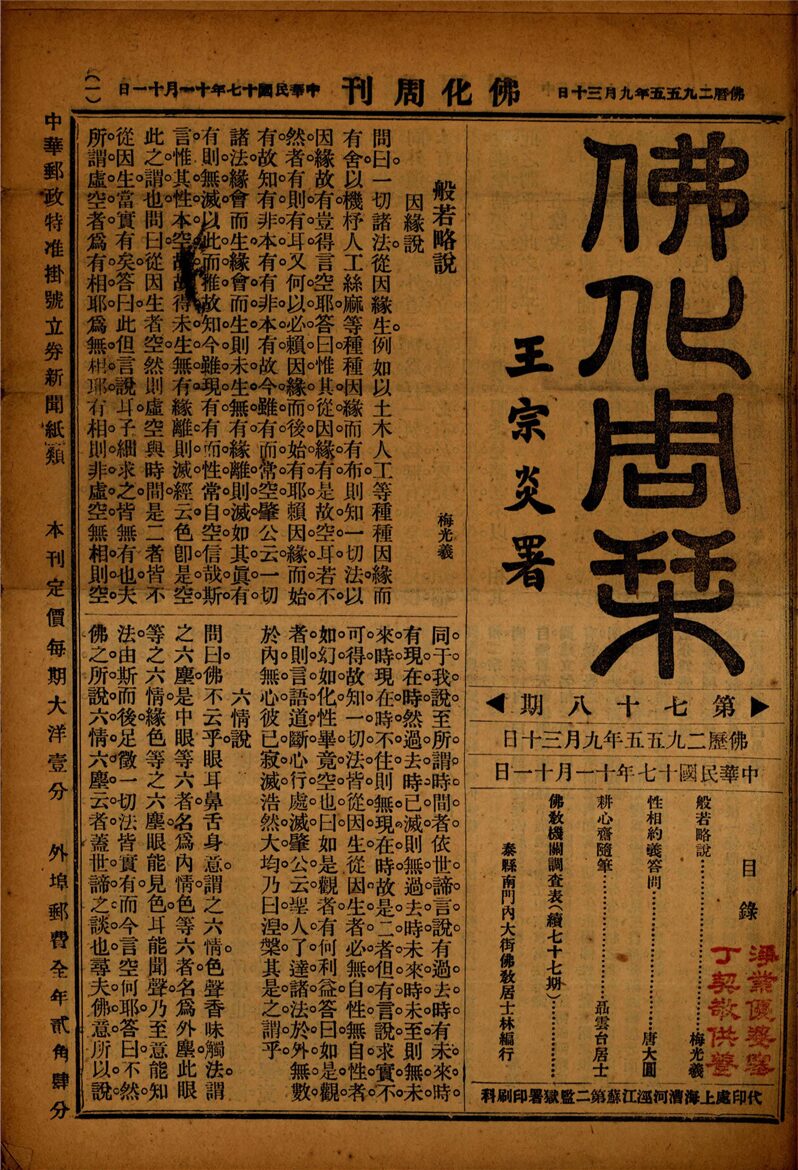 佛曆二九五五年九月三十日
佛化周刊
中華民國十七年十一月十一日
(一)
佛化周栞
王宗炎署
第七十八期
佛曆二九五五年九月三十日
中華民國十七年十一月十一日
目錄
般若略說……梅光羲
性相約義答問……唐大圓
耕心齋隨筆……聶雲台居士
佛敎機關調查表(續七十七期)……
泰縣南門內大街佛敎居士林編行
淨業優婆塞
丁契敬供養
代印處上海漕河涇江蘇第二監獄署印刷科
般若略說
梅光羲
因緣說
問曰一切諸法。從因緣生。例如以土木人工等種種因緣而
有舍。以機杼人工絲麻等種種因緣而有布。則知一切法以
因緣故有。豈得言空耶。答曰。惟其從因緣有。是故空耳。若不
然者。有則有耳。又何以必賴因緣而後始有耶。賴因緣而始
有。故知有非本有。有非本有。故今雖有而常空。肇公云。一切
諸法。緣會而生。緣會而生。則未生無有。緣離則滅。如其眞有。
有則無滅。以此而推。故知今雖現有。有而性常自空。信哉斯
言。惟其性本空故。故得未生無有。緣離則滅。經云。色卽是空。
此之謂也。問曰。從因生者空。然則虛空與時間。是二者皆不
從因生。當實有矣。答曰。此但言說耳。子細求之。皆無有也。夫
所謂虛空者。爲有相耶。爲無相耶。有相則非虛空。無相則空。
同于我說。至所謂時間者。依世諦言說。有過去時。有未來時。
有現在時。然過去時已滅。則無過去時。未來時未至。則無未
來時。現在時不住。則無現在時。故是二者。但有言說。求實不
可得。故知一切法皆從因生。從因生者。必無自性。無自性者。
如幻如化。性畢竟空也。曰。如是觀者。有何利益。答曰。如是觀
者。則言語道斷。心行處滅。肇公云。聖人了達諸法。於外無數。
於內無心。彼已寂滅。浩然大均。乃曰涅槃。其是之謂乎。
六情說
問曰。佛不云乎。眼耳鼻舌身意。謂之六情。色聲香味觸法。謂
之六塵。是中眼等六者。名爲內情。色等六者。名爲外塵。此眼
等之六情。緣色等之六塵。眼能見色。耳能聞聲。乃至意能知
法。由斯而後足徵一切法皆實有。而今言空何耶。答曰。不然。
佛之所說六情六塵云者。蓋世諦之談也。尋夫佛意。所以說
中華郵政特准掛號立券新聞紙類
本刊定價每期大洋壹分
外埠郵費全年貳角肆分